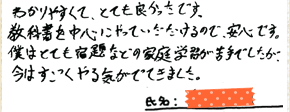 わかりやすくて、とても良かったです。
教科書を中心にやっていただけるので、安心です。
僕はとても宿題などの家庭学習が苦手でしたが、
今はすごくやる気がでてきました。
氏名: